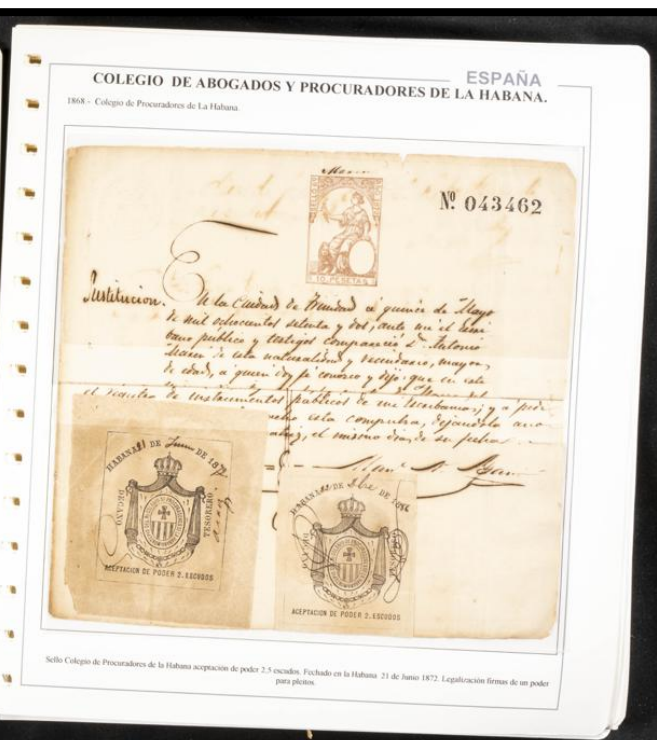 ESPAÑA
COLEGIO DE ABOGADOS Y PROCURADORES DE LA HABANA.
1868 - Colegio de Procuradores de La Habana.
Nº 043462
10 PESETAS
En la Ciudad de Trinidad á quince de Mayo
de mil ochocientos setenta y dos, ante mi el Escri
bano público y testigos compareció D. Antonio
de esta naturalidad y vecindario, mayor
de edad, a quien doy fé conozco y dijo: que en este
el registro de instrumentos públicos de mi Escribania; y a pedi
el mismo dia de su fecha
HABANA 21 DE Junio DE 1872
DECANO
TESORERO
ACEPTACION DE PODER 2. ESCUDOS
HABANA DE DE 1866
DECANO
ACEPTACION DE PODER 2. ESCUDOS
Sello Colegio de Procuradores de la Habana aceptación de poder 2.5 escudos. Fechado en la Habana 21 de Junio 1872. Legalización firmas de un poder
para pleitos.